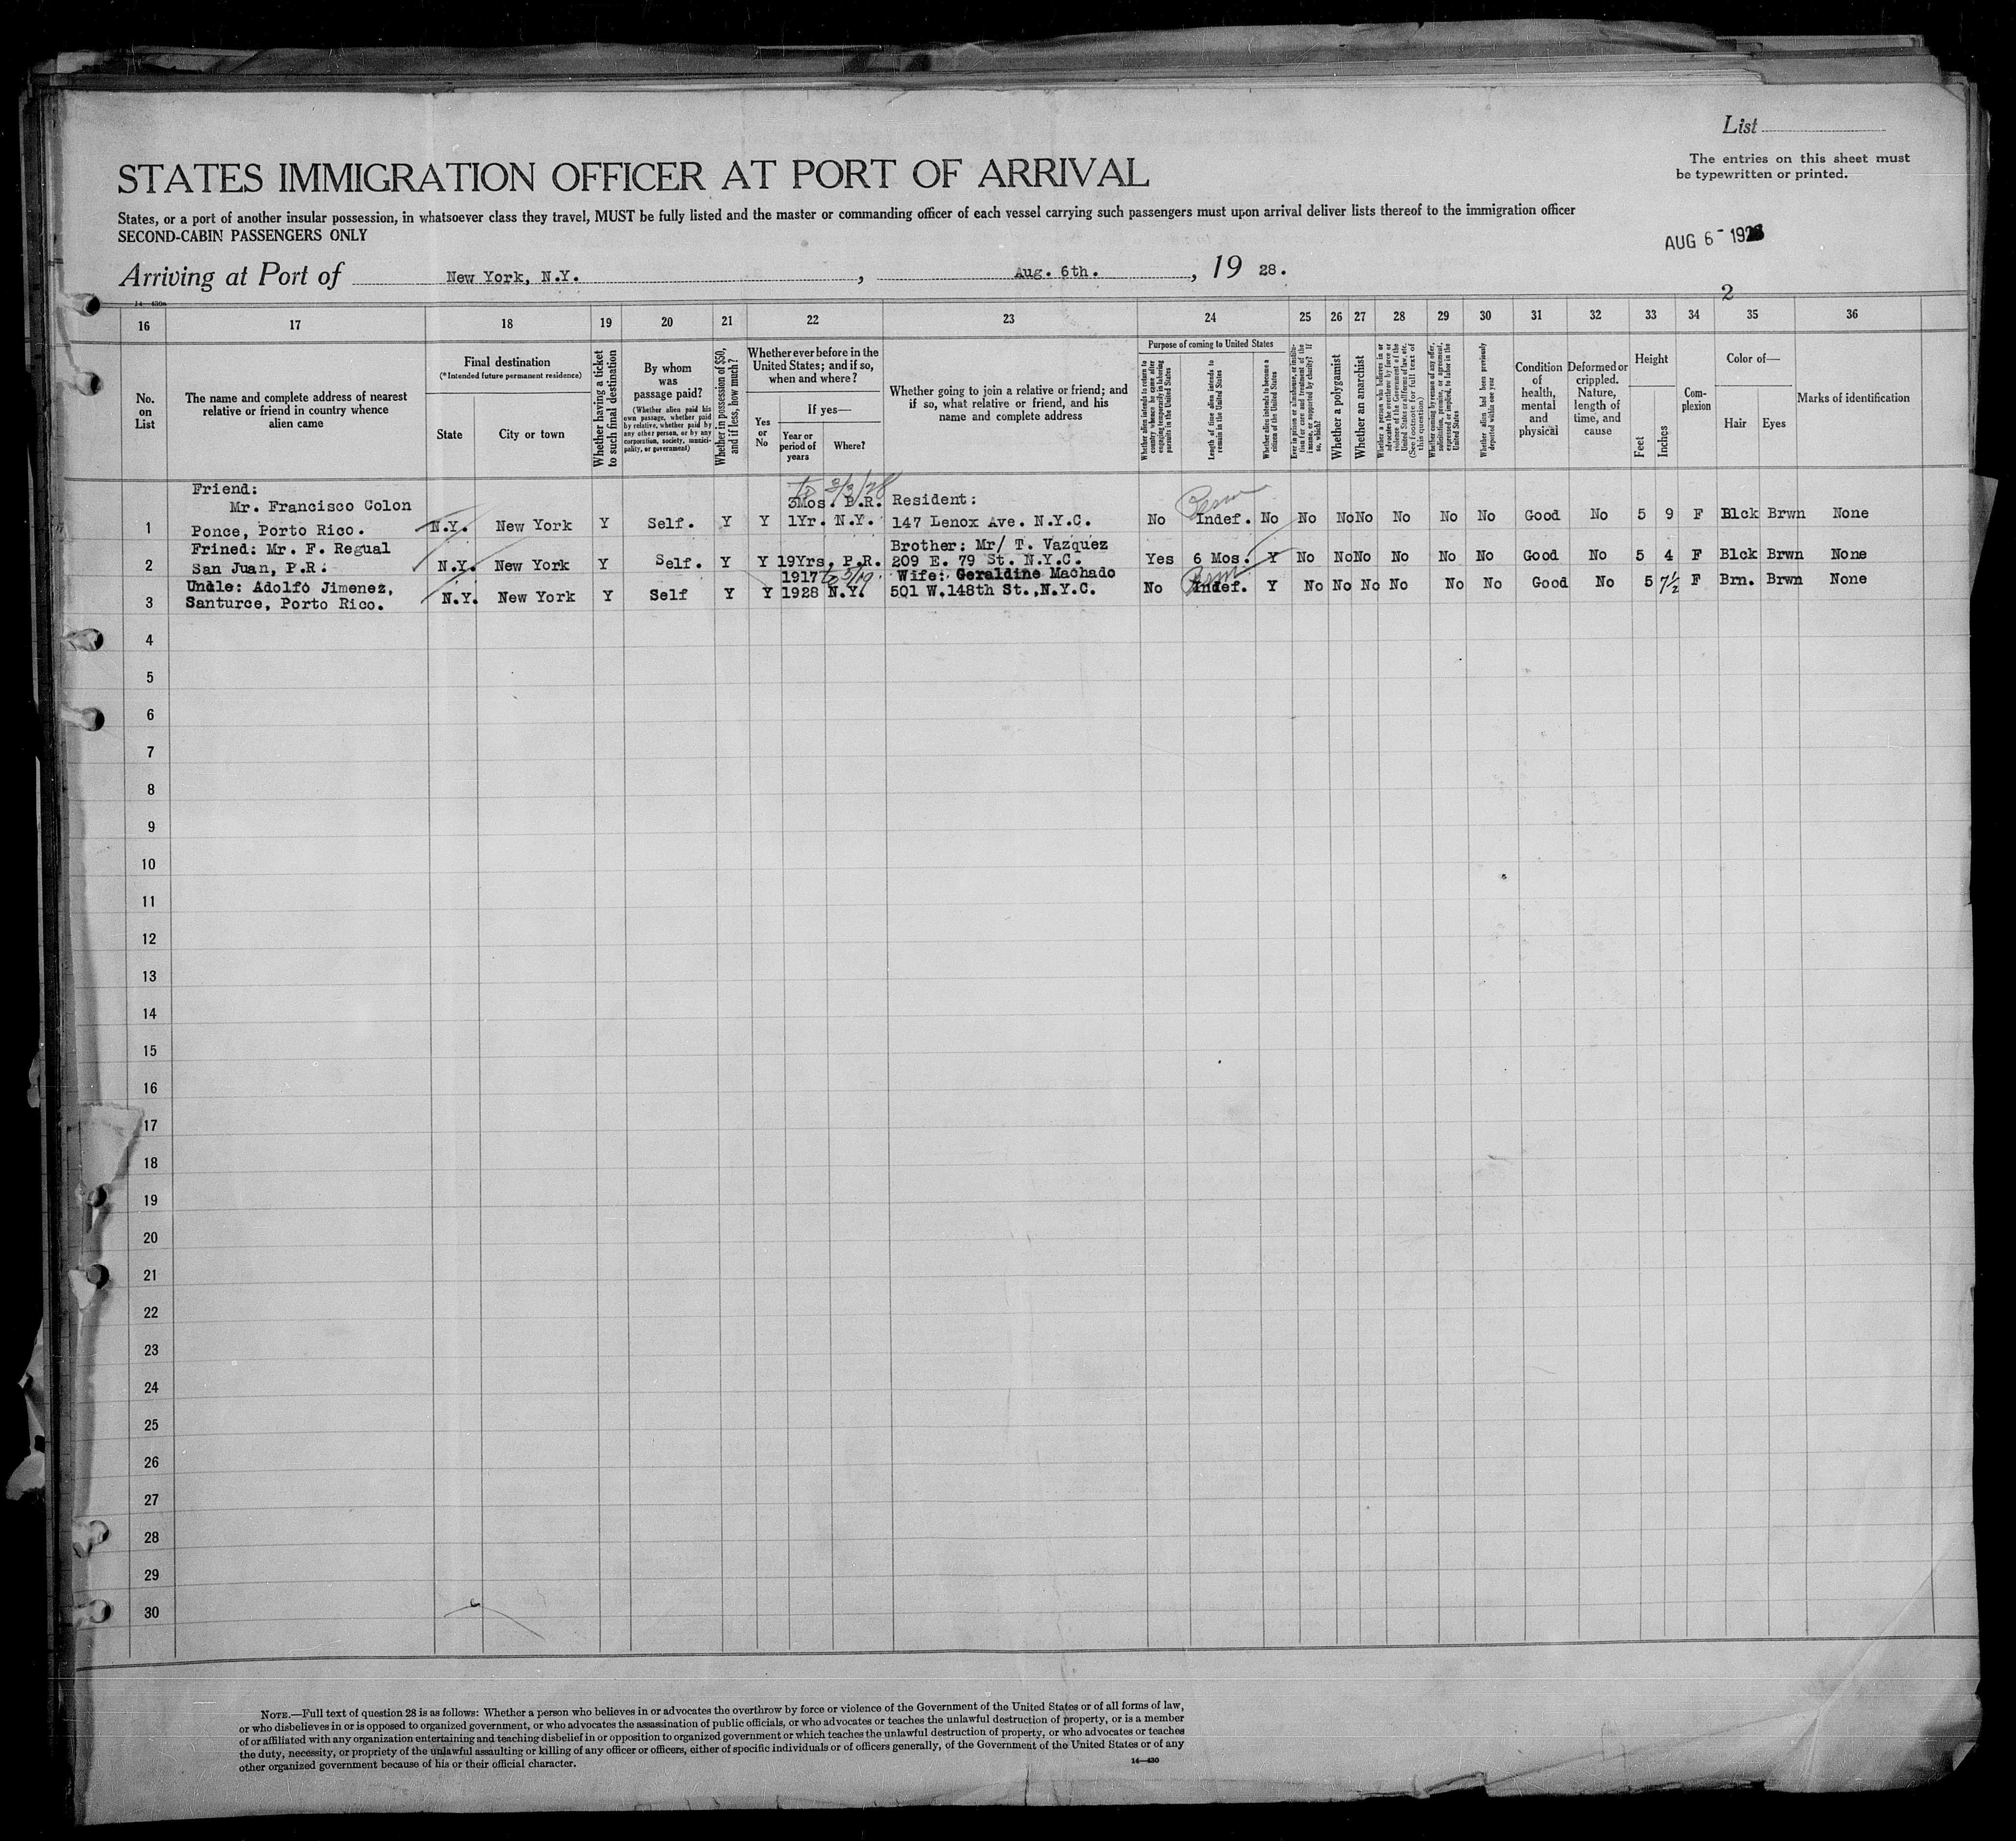 List
The entries on this sheet must
be typewritten or printed.
STATES IMMIGRATION OFFICER AT PORT OF ARRIVAL
States, or a port of another insular possession, in whatsoever class they travel, MUST be fully listed and the master or commanding officer of each vessel carrying such passengers must upon arrival deliver lists thereof to the immigration officer
SECOND-CABIN PASSENGERS ONLY
AUG 6 - 1928
Arriving at Port of New York, N.Y. , Aug. 6th. , 19 28.
2
14—430a
16 17 18 19 20 21 22 23 24 25 26 27 28 29 30 31 32 33 34 35 36
No.
on
List
The name and complete address of nearest
relative or friend in country whence
alien came
Final destination
(*Intended future permanent residence)
State
City or town
Whether having a ticket
to such final destination
By whom
was
passage paid?
(Whether alien paid his
own passage, whether paid
by relative, whether paid by
any other person, or by any
corporation, society, munici-
pality, or government)
Whether in possession of $50,
and if less, how much?
Whether ever before in the
United States; and if so,
when and where?
Yes
or
No
If yes—
Year or
period of
years
Where?
Whether going to join a relative or friend; and
if so, what relative or friend, and his
name and complete address
Purpose of coming to United States
Whether alien intends to return to
country whence he came after
engaging temporarily in laboring
pursuits in the United States
Length of time alien intends to
remain in the United States
Whether alien intends to become a
citizen of the United States
Ever in prison or almshouse, or institu-
tion for care and treatment of the
insane, or supported by charity? If
so, which?
Whether a polygamist
Whether an anarchist
Whether a person who believes in or
advocates the overthrow by force or
violence of the Government of the
United States or all forms of law, etc.
(See footnote for full text of
this question)
Whether coming by reason of any offer,
solicitation, promise, or agreement,
expressed or implied, to labor in the
United States
Whether alien had been previously
deported within one year
Condition
of
health,
mental
and
physical
Deformed or
crippled.
Nature,
length of
time, and
cause
Height
Feet
Inches
Com-
plexion
Color of—
Hair
Eyes
Marks of identification
Friend: to 3/3/28
Mr. Francisco Colon 3Mos. P.R. Resident: Perm
1 Ponce, Porto Rico. N.Y. New York Y Self. Y Y 1Yr. N.Y. 147 Lenox Ave. N.Y.C. No Indef. No No No No No No No Good No 5 9 F Blck Brwn None
Frined: Mr. F. Regual Brother: Mr/ T. Vazquez
2 San Juan, P.R. N.Y. New York Y Self. Y Y 19Yrs, P.R. 209 E. 79 St. N.Y.C. Yes 6 Mos. Y No No No No No No Good No 5 4 F Blck Brwn None
Uncle: Adolfo Jimenez, 1917 to Wife: Geraldine Machado Perm
3 Santurce, Porto Rico. N.Y. New York Y Self Y Y 1928 N.Y. 501 W.148th St.,N.Y.C. No Indef. Y No No No No No No Good No 5 7½ F Brn. Brwn None
4
5
6
7
8
9
10
11
12
13
14
15
16
17
18
19
20
21
22
23
24
25
26
27
28
29
30
NOTE.—Full text of question 28 is as follows: Whether a person who believes in or advocates the overthrow by force or violence of the Government of the United States or of all forms of law,
or who disbelieves in or is opposed to organized government, or who advocates the assassination of public officials, or who advocates or teaches the unlawful destruction of property, or is a member
of or affiliated with any organization entertaining and teaching disbelief in or opposition to organized government or which teaches the unlawful destruction of property, or who advocates or teaches
the duty, necessity, or propriety of the unlawful assaulting or killing of any officer or officers, either of specific individuals or of officers generally, of the Government of the United States or of any
other organized government because of his or their official character.
14—430